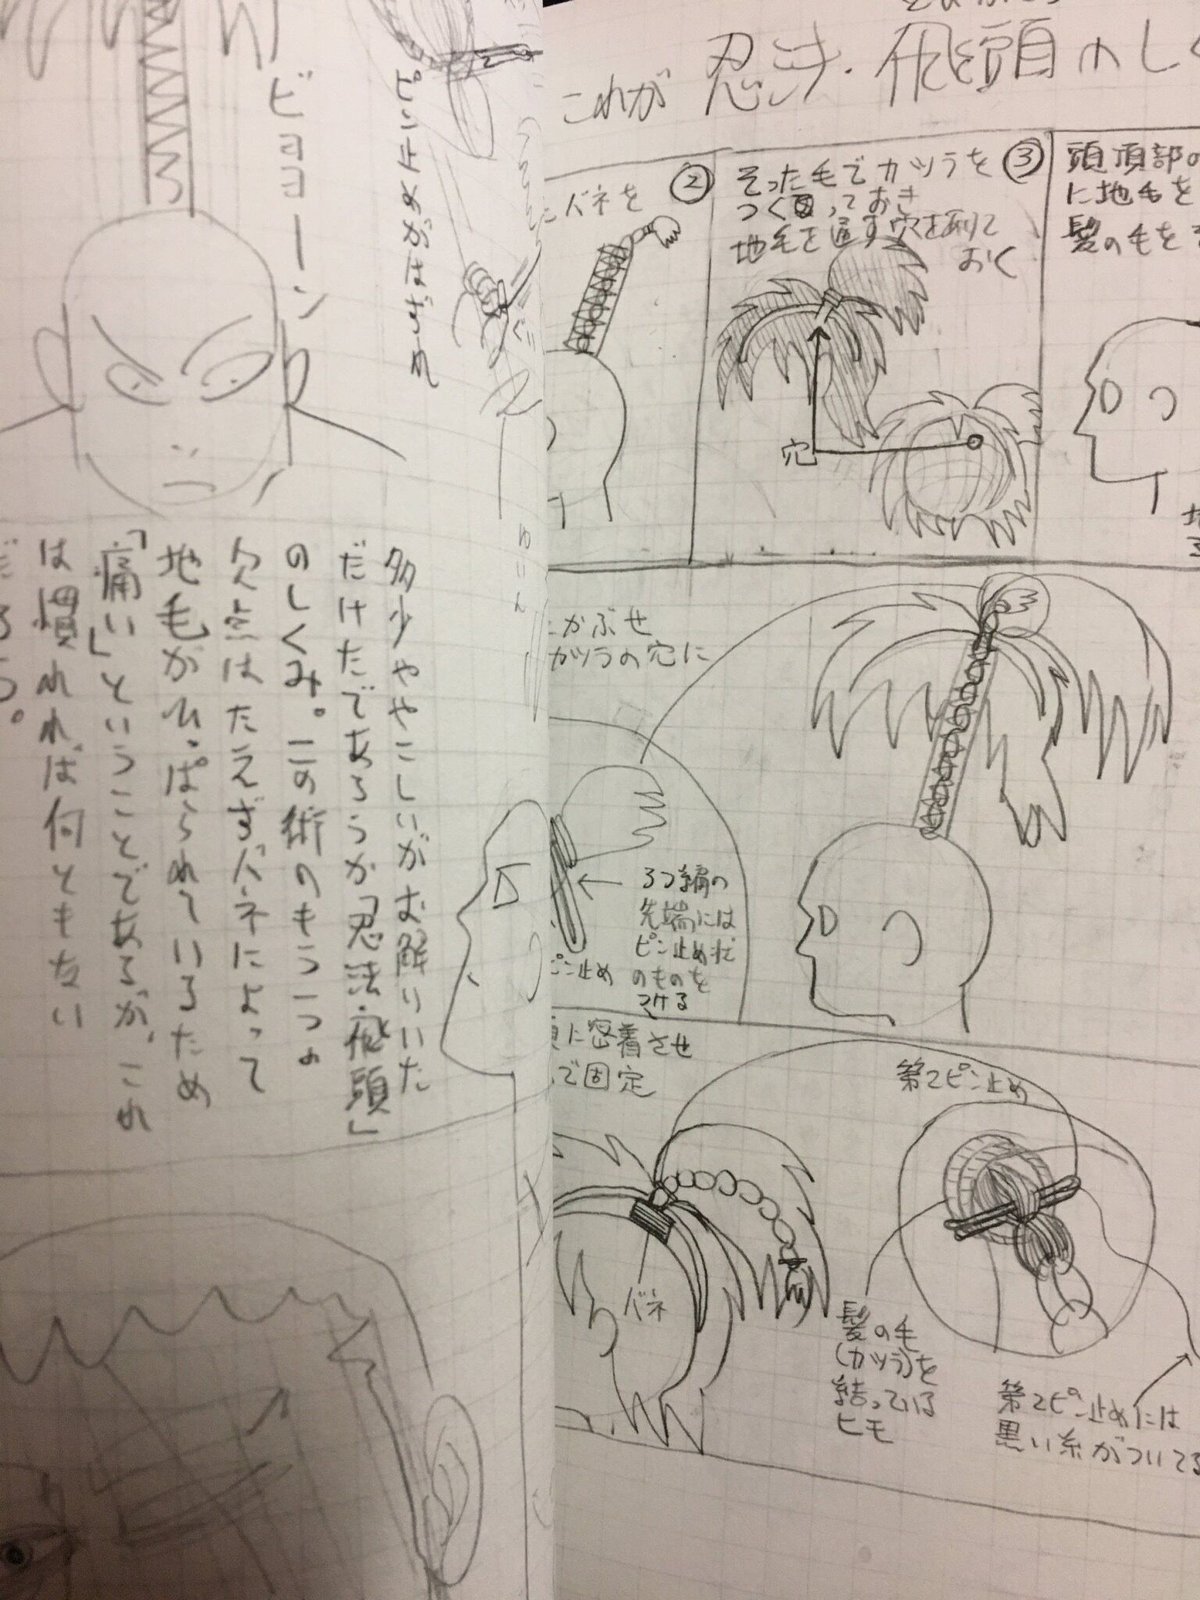 これが 忍法・飛頭のし
②
バネを
③
そった毛でカツラを
つくっておき
地毛を通す穴を創て
おく
穴
頭頂部の
に地毛を
髪の毛を
かぶせ
カツラの穴に
3つ編の
先端には
ピン止め状
のものを
つける
ピン止め
に密着させ
で固定
バネ
第2ピン止め
髪の毛
(カツラ)を
結っている
ヒモ
第2ピン止めには
黒い糸がついてる
ピン止めがはずれ
ビヨヨーン
多少ややこしいがお解りいた
だけたであろうか「忍法・飛頭」
のしくみ。この術のもう一つの
欠点はたえずバネによって
地毛がひっぱられているため
「痛い」ということであるが、これ
は慣れれば何ともない
だろう。